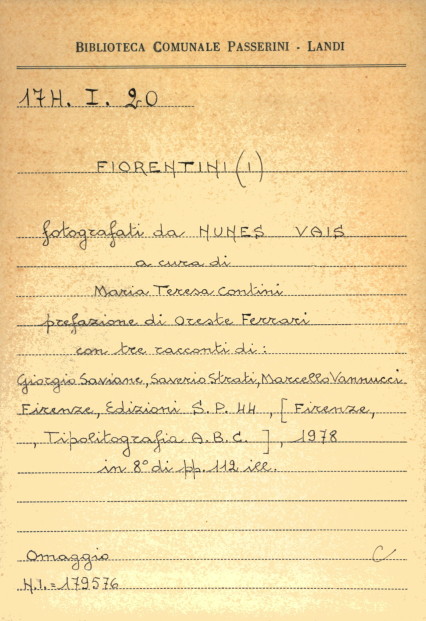 BIBLIOTECA COMUNALE PASSERINI - LANDI
17H. I. 20
FIORENTINI (I)
fotografati da NUNES VAIS
a cura di
Maria Teresa Contini
prefazione di Oreste Ferrari
con tre racconti di:
Giorgio Saviane, Saverio Strati, Marcello Vannucci
Firenze, Edizioni S.P. 44, [Firenze,
, Tipolitografia A.B.C. ], 1978
in 8° di pp. 112 ill.
Omaggio C
N.I. = 179576